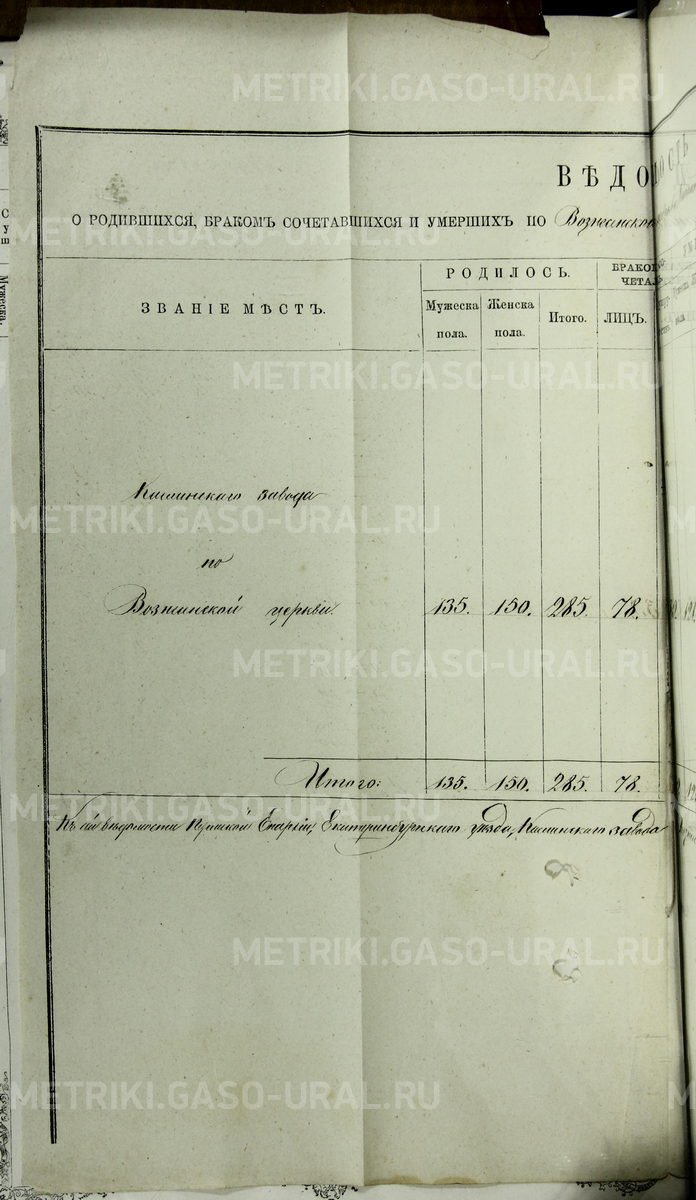 ВѢДО
О РОДИВШИХСЯ, БРАКОМЪ СОЧЕТАВШИХСЯ И УМЕРШИХЪ ПО Вознесенской
ЗВАНІЕ МѢСТЪ.
РОДИЛОСЬ.
БРАКОМ
ЧЕТАЛ
Мужеска
пола.
Женска
пола.
Итого.
ЛИЦЪ.
Каслинскаго завода
по
Вознесенской церкви. 135. 150. 285. 78.
Итого: 135. 150. 285. 78.
Къ сей вѣдомости Пермской Епархіи, Екатеринбургскаго уѣзда, Каслинскаго завода
Мужеска.
METRIKI.GASO-URAL.RU
METRIKI.GASO-URAL.RU
METRIKI.GASO-URAL.RU
METRIKI.GASO-URAL.RU
METRIKI.GASO-URAL.RU
METRIKI.GASO-URAL.RU
METRIKI.GASO-URAL.RU
METRIKI.GASO-URAL.RU